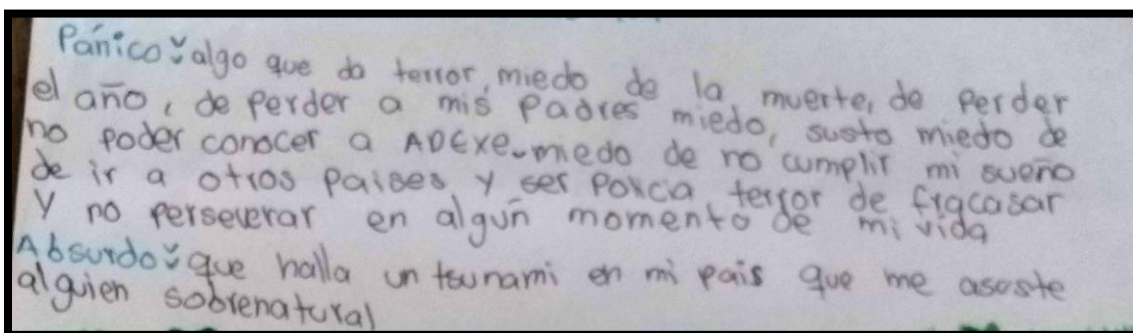 Pánico: algo que da terror, miedo de la muerte, de perder
el año, de perder a mis padres miedo, susto miedo de
no poder conocer a ADEXE-miedo de no cumplir mi sueño
de ir a otros paises y ser policia terror de fracasar
y no perseverar en algún momento de mi vida
Absurdo: que halla un tsunami en mi pais que me asoste
alguien sobrenatural